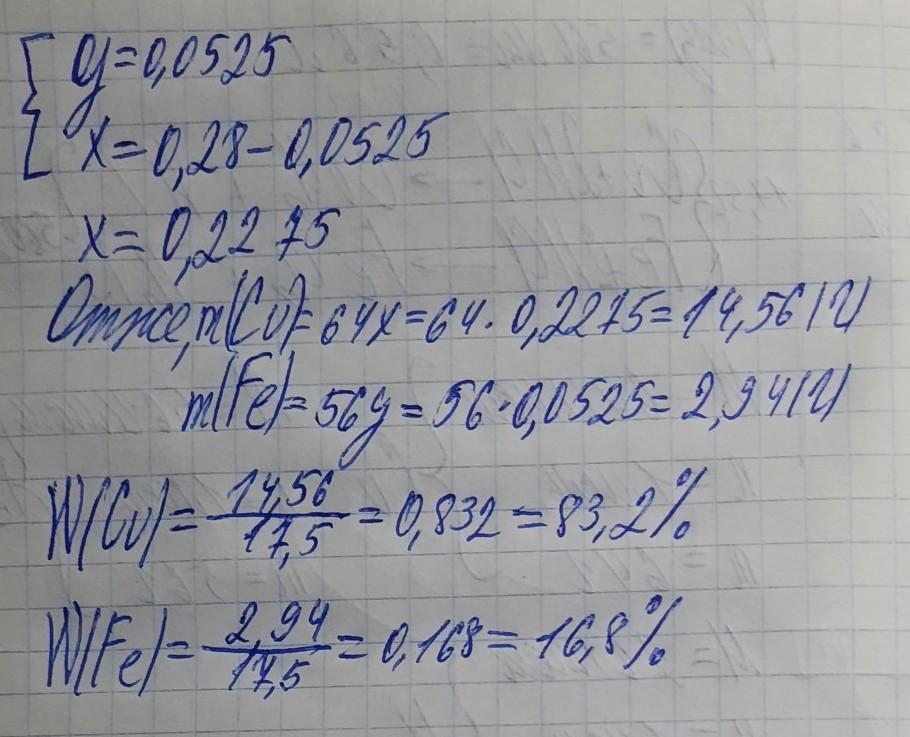 y=0,0525
x=0,28-0,0525
x=0,2275
Отже, m(Cu)=64x=64·0,2275=14,56(г)
m(Fe)=56y=56·0,0525=2,94(г)
W(Cu)=14,56/17,5=0,832=83,2%
W(Fe)=2,94/17,5=0,168=16,8%